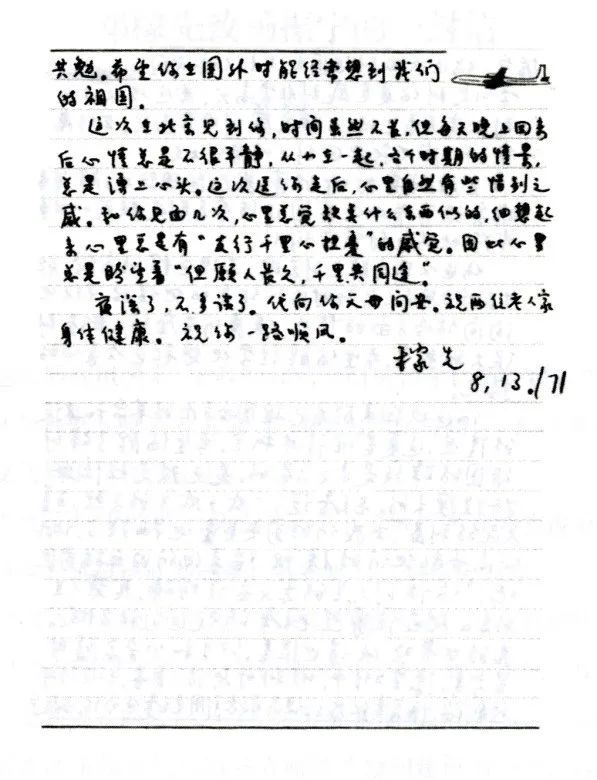 共勉。希望你在国外时能经常想到我们
的祖国。
这次在北京见到你,时间虽然不长,但每天晚上回来
后心情总是不很平静,从小在一起,各个时期的情景,
总是涌上心头。这次送你走后,心里自然有些惜别之
感。和你见面几次,心里总觉缺点什么东西似的,细想起
来心里总是有“友行千里心担忧”的感觉。因此心里
总是盼望着“但愿人长久,千里共同途”
夜深了,不多谈了。代向你父母问安。祝两位老人家
身体健康。祝你一路顺风。
稼先
8,13./71